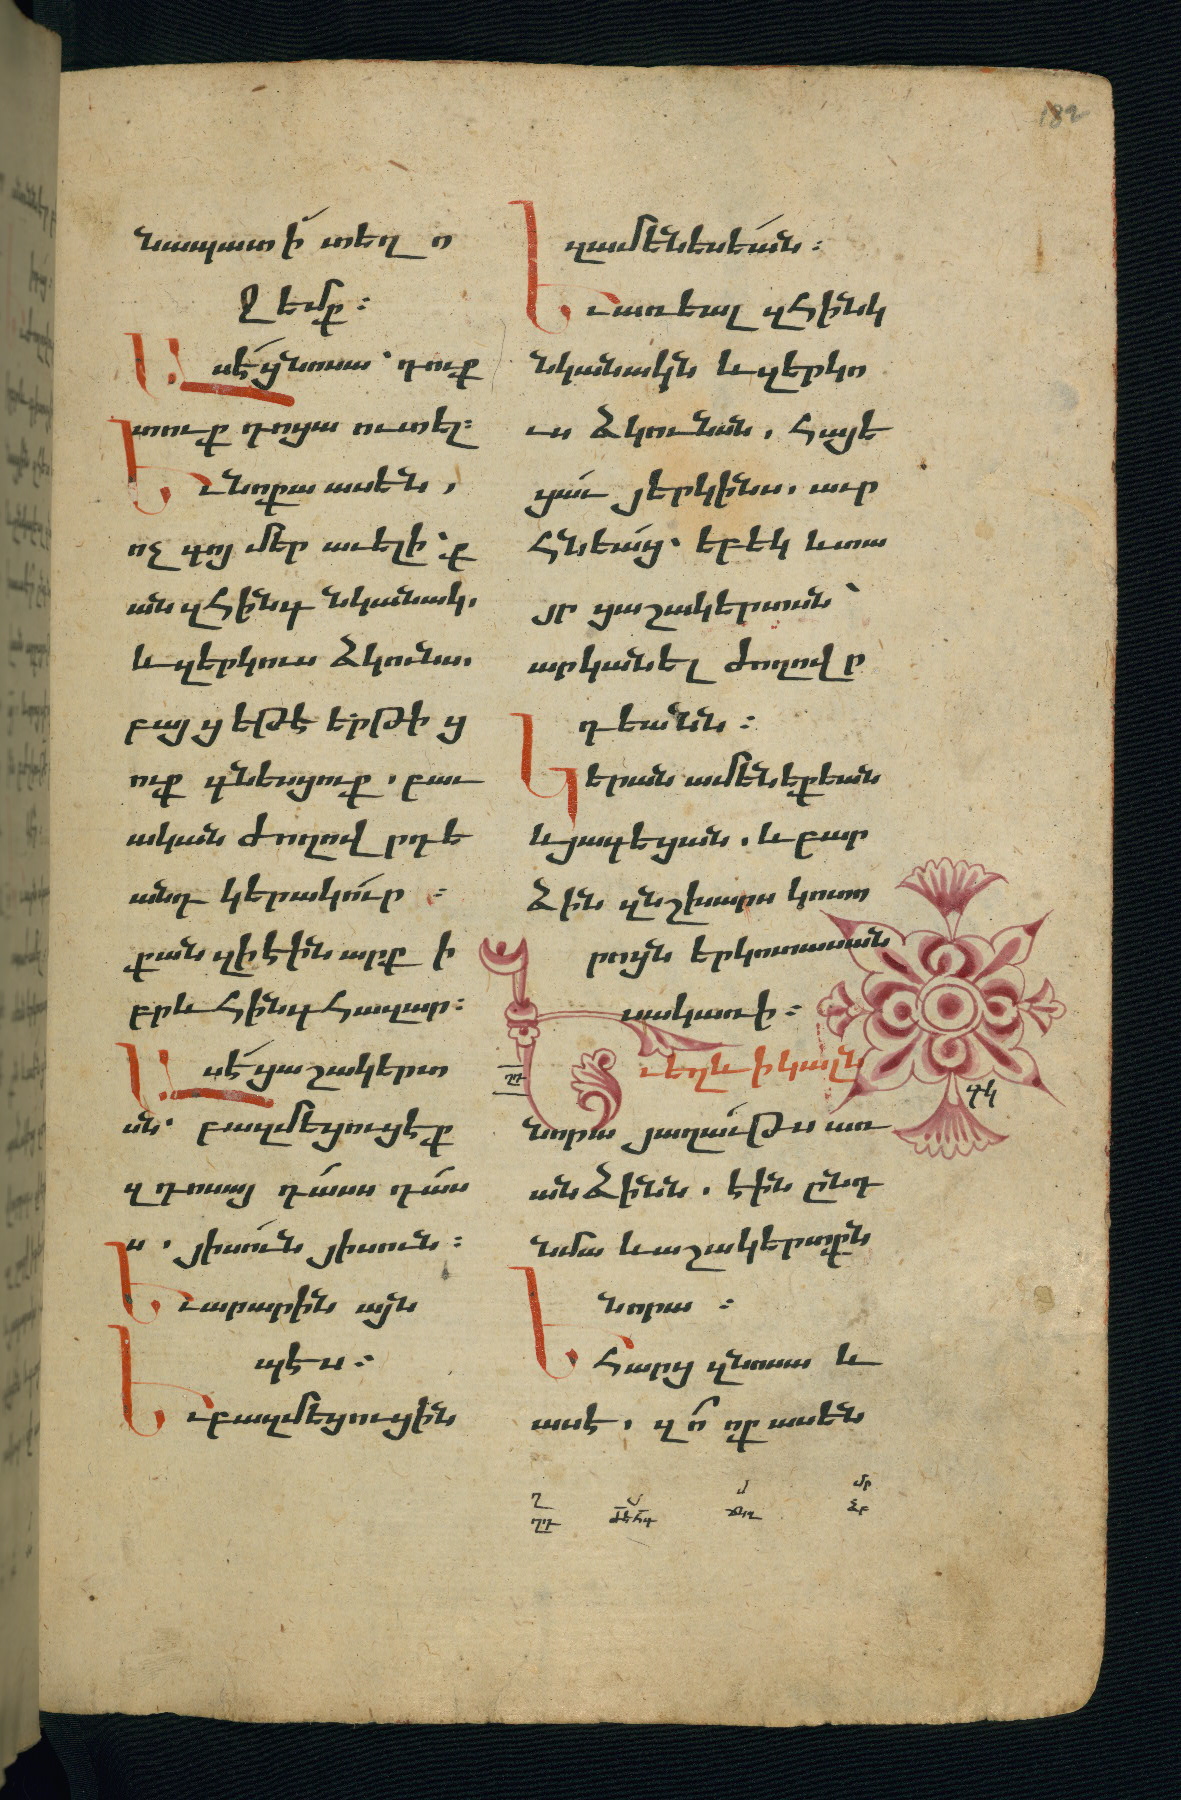 նապատի տեղ ո
ջ եմք։
Ասէ ցնոսա՝ դուք
տուք դոցա ուտել։
Եւ նոքա ասեն,
ոչ գոյ մեր աւելի՝ ք
ան զհինգ նկանակ,
և զերկուս ձկունս,
բայց եթէ երթից
ուք գնեսցուք, բաւ
ական ժողովրդե
անդ կերակուր ։
քան զի էին արք ի
բրև հինգ հազար։
Ասէ ցաշակերտ
սն՝ բազմեցուցէք
զդոսայ դասս դաս
ս, յիսուն յիսուն։
Եւ արարին այն
պէս։
Եւ բազմեցուցին
զամենեսեան։
Եւ առեալ զհինգ
նկանակն և զերկո
ւս ձկունսն, հայե
ցաւ յերկինս, աւր
հնեաց՝ եբեկ և տա
յր ցաշակերտսն՝
արկանել ժողովր
դեանն։
Կերան ամենեքեան
և յագեցան, և բար
ձին զնշխարս կոտո
րոյն երկոտասան
սակառի։
Եւ եղև ի կալն
նորա յաղաւթս առ
անձինն, էին ընդ
նմա և աշակերտքն
նորա։
Եւ հարց զնոսա և
ասէ, զո՞ ոք ասեն
182